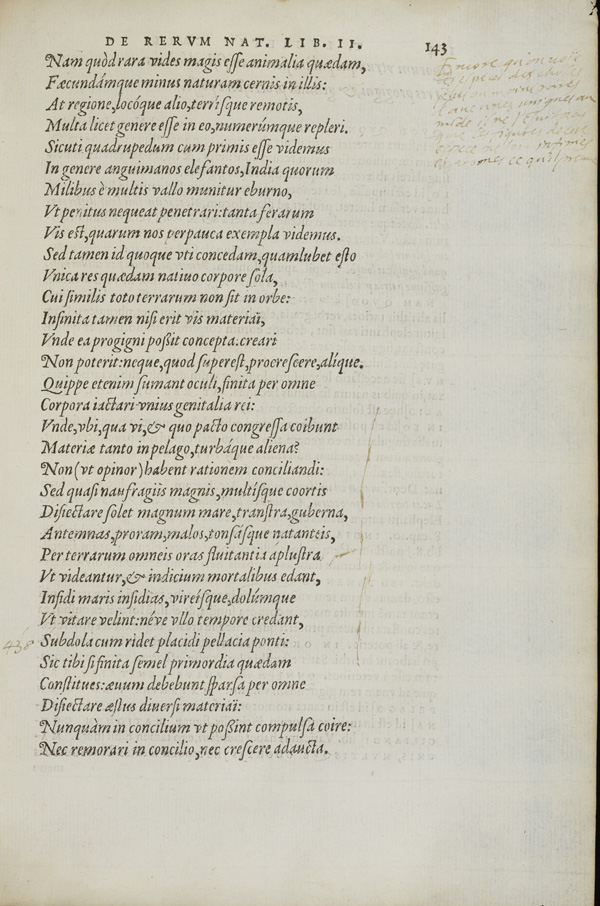 DE RERVM NAT. LIB. II. 143
Nam quòd rara vides magis esse animalia quædam,
Fæcundámque minus naturam cernis in illis:
At regione, locóque alio, terrísque remotis,
Multa licet genere esse in eo, numerúmque repleri.
Sicuti quadrupedum cum primis esse videmus
In genere anguimanos elefantos, India quorum
Milibus è multis vallo munitur eburno,
Vt penitus nequeat penetrari: tanta ferarum
Vis est, quarum nos perpauca exempla videmus.
Sed tamen id quoque vti concedam, quamlubet esto
Vnica res quædam natiuo corpore sola,
Cui similis toto terrarum non sit in orbe:
Infinita tamen nisi erit vis materiaï,
Vnde ea progigni possit concepta: creari
Non poterit: neque, quod superest, procrescere, alíque.
Quippe etenim sumant oculi, finita per omne
Corpora iactari vnius genitalia rei:
Vnde, vbi, qua vi, & quo pacto congressa coibunt
Materiæ tanto in pelago, turbáque aliena?
Non (vt opinor) habent rationem conciliandi:
Sed quasi naufragiis magnis, multísque coortis
Disiectare solet magnum mare, transtra, guberna,
Antemnas, proram, malos, tonsásque natanteis,
Per terrarum omneis oras fluitantia aplustra
Vt videantur, & indicium mortalibus edant,
Infidi maris insidias, vireísque, dolúmque
Vt vitare velint: néve vllo tempore credant,
438 Subdola cum ridet placidi pellacia ponti:
Sic tibi si finita semel primordia quædam
Constitues: æuum debebunt sparsa per omne
Disiectare æstus diuersi materiaï:
Nunquàm in concilium vt possint compulsa coire:
Nec remorari in concilio, nec crescere adaucta.
Encore